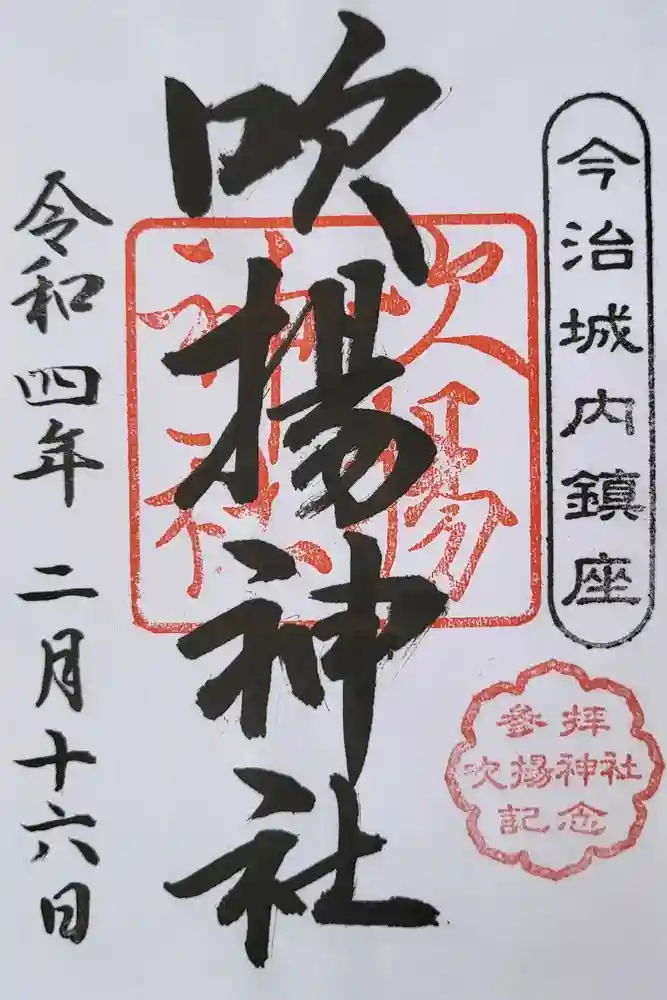 今治城内鎮座
參拝
吹揚神社
記念
吹揚神社
吹揚
神社
令和四年 二月十六日